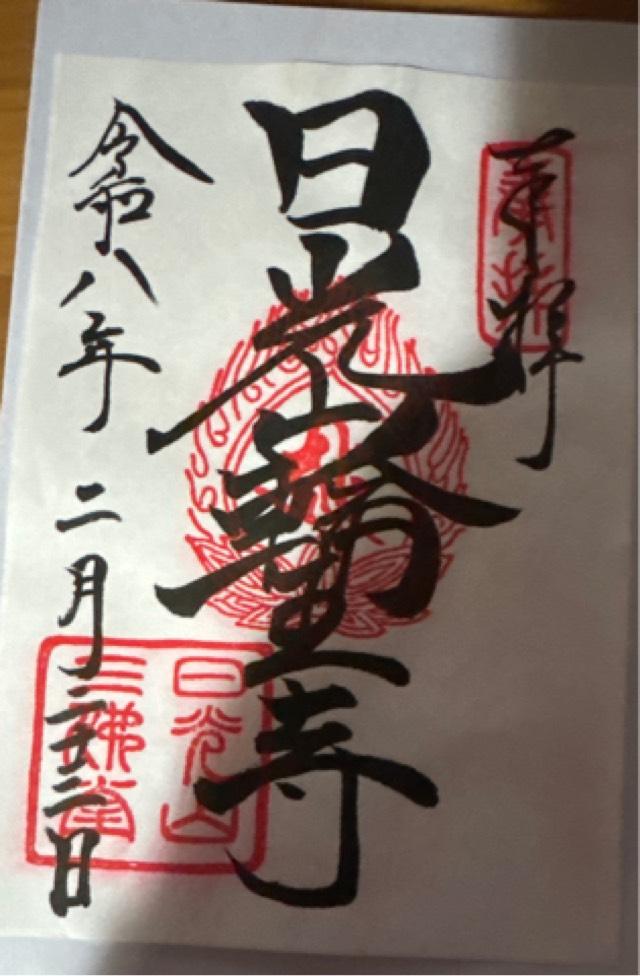 奉拝
日光山輪王寺
令和八年二月二十二日
日光山
三佛堂